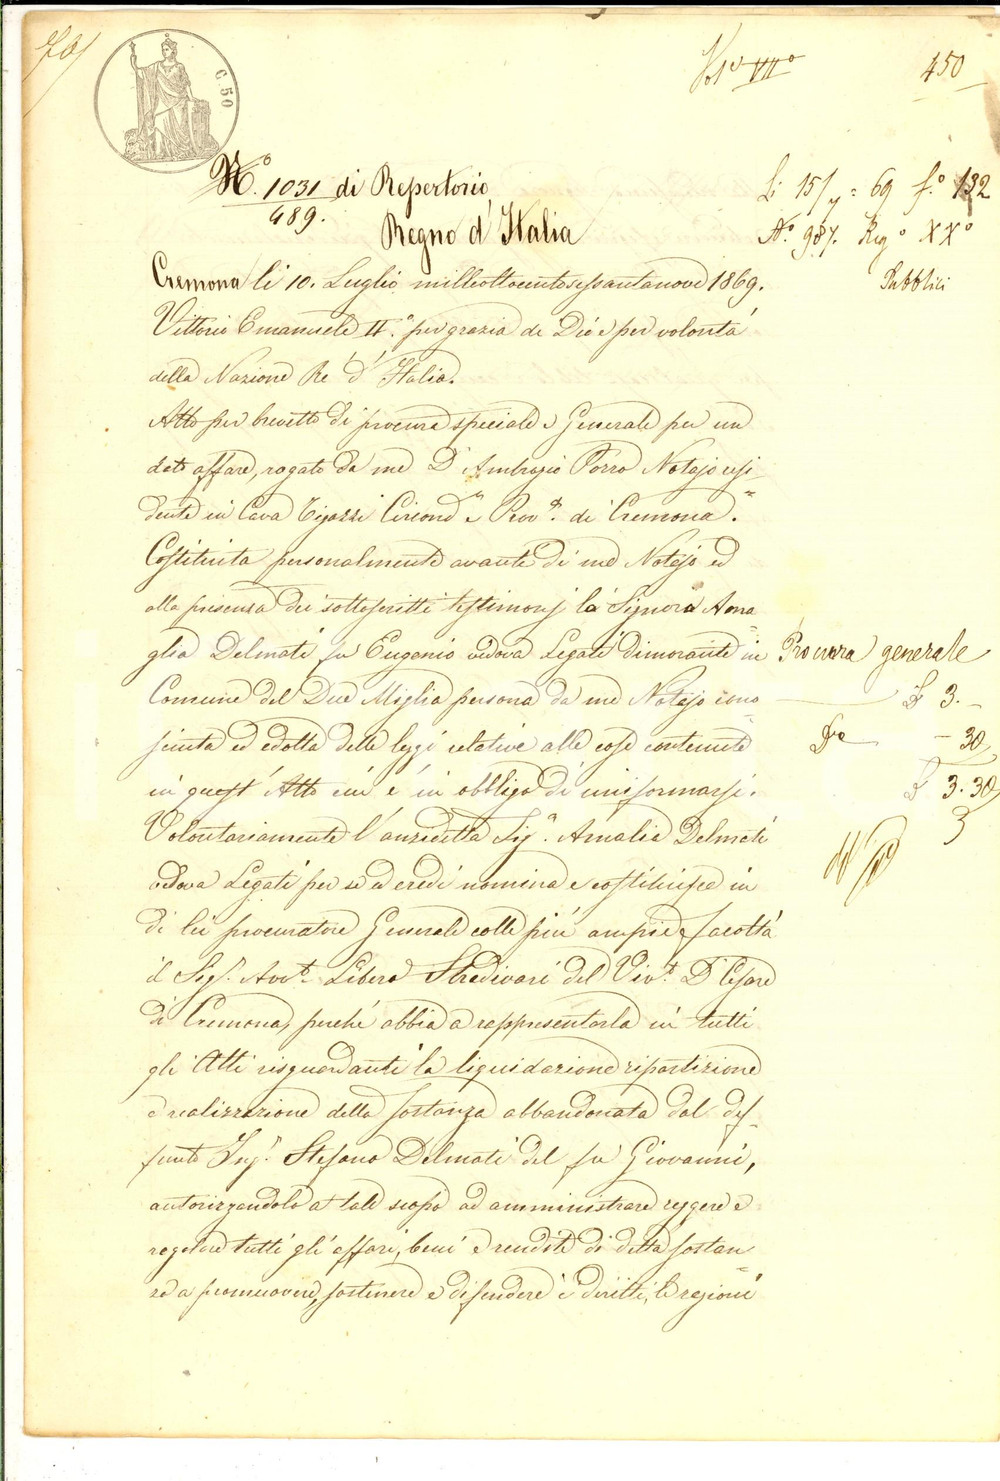 70/
C. 50
Vol.e VII°
450
N.° 1031 di Repertorio
489.
Regno d'Italia
Li 15/7 = 69 f.° 132
N.° 987. Reg° XX°
Pubblici
Cremona li 10. Luglio milleottocentosessantanove 1869.
Vittorio Emanuele II.° per grazia di Dio e per volontà
della Nazione Re d'Italia.
Atto per brevetto di procura speciale e Generale per un
dato affare, rogato da me D.r Ambrogio Porro Notajo resi
dente in Cava Tigozzi Circond.° e Prov.a di Cremona.
Costituita personalmente avanti di me Notajo ed
alla presenza dei sottoscritti testimonj la Signora Ama
glia Delmati fu Eugenio vedova Legati dimorante in
Comune del Due Miglia persona da me Notajo cono
sciuta ed edotta delle leggi relative alle cose contenute
in quest'Atto cui è in obbligo di uniformarsi.
Volontariamente l'anzidetta Sig.a Amalia Delmati
vedova Legati per se ed eredi nomina e costituisce in
di lei procuratore Generale colle più ampie facoltà
il Sig.r Avv.to Libero Stradivari del Viv.te D.r Cesare
di Cremona, perché abbia a rappresentarla in tutti
gli Atti risguardanti la liquidazione ripartizione
e realizzazione della sostanza abbandonata dal de
funto Ing.r Stefano Delmati del fu Giovanni,
autorizzandolo a tale scopo ad amministrare reggere e
regolare tutti gli affari, beni e rendite di detta sostan
za a promuovere, sostenere e difendere i diritti, le ragioni
Procura generale
£ 3. –
D.e – 30
£ 3. 30
3